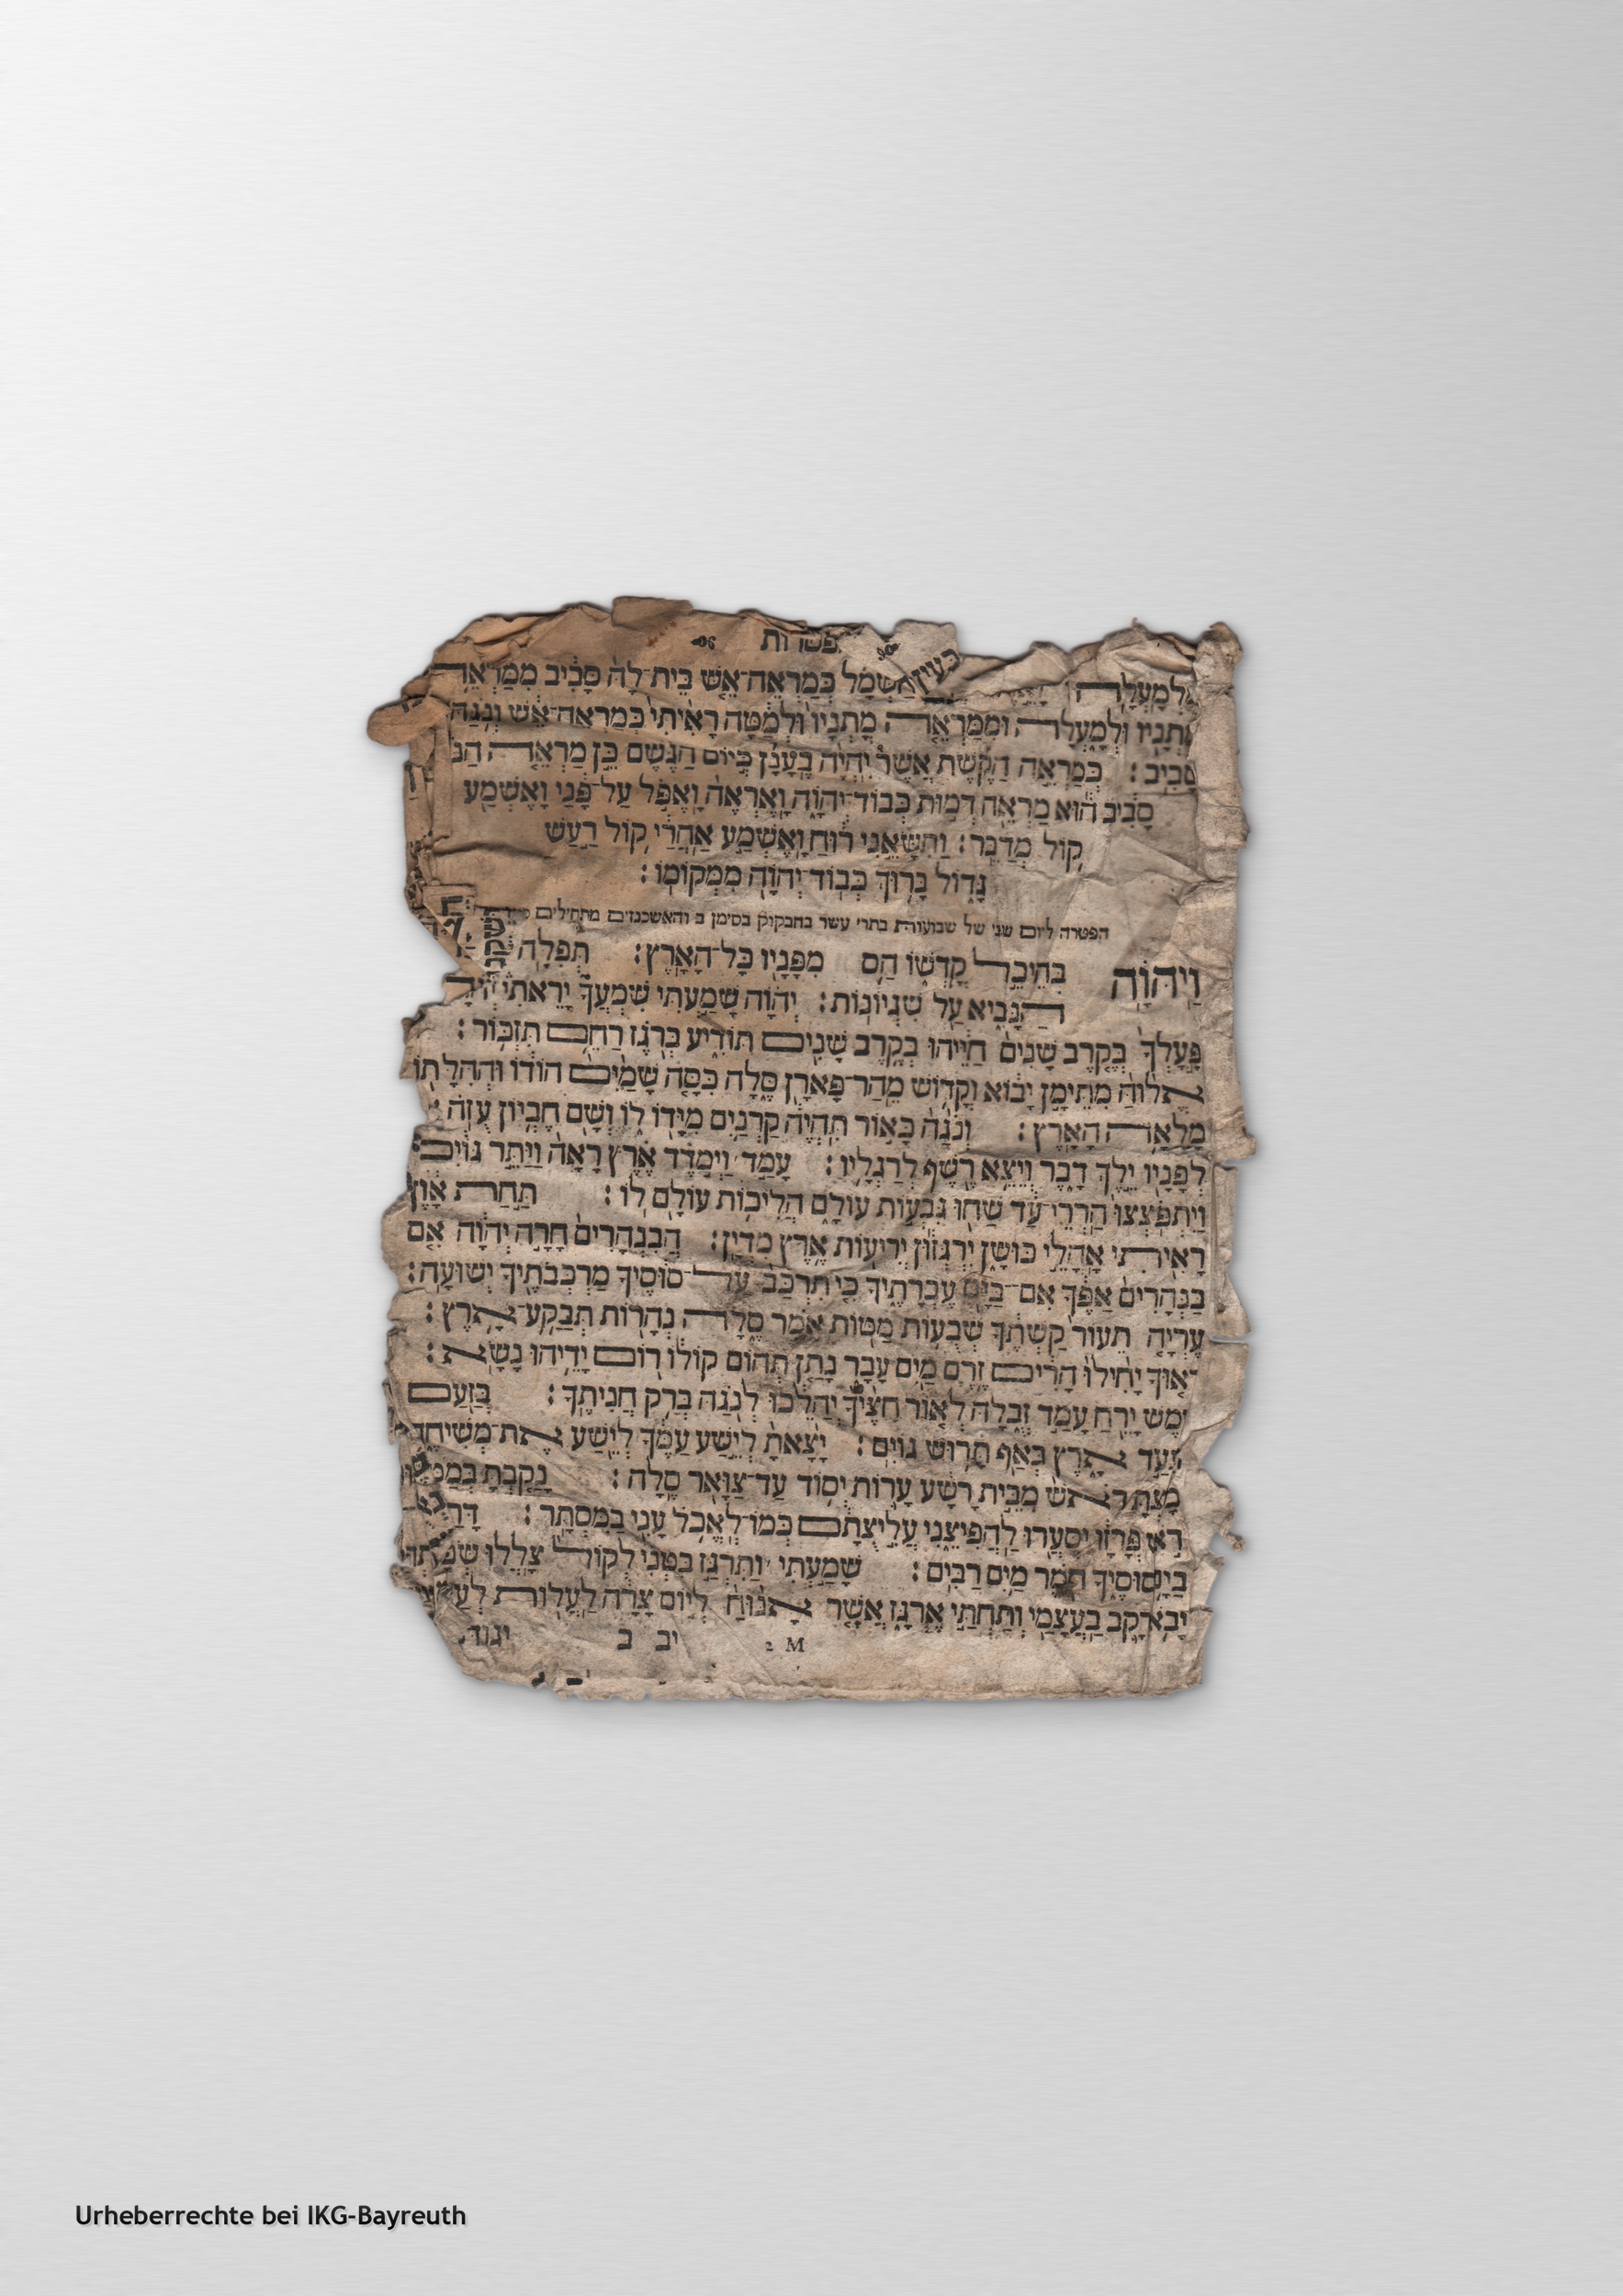 פטרות
ולמעלה כעין חשמל כְּמַרְאֵה־אֵשׁ בֵּית־לָהּ סָבִיב מִמַּרְאֵה
מָתְנָיו וּלְמָעְלָה וּמִמַּרְאֵה מָתְנָיו וּלְמַטָּה רָאִיתִי כְּמַרְאֵה־אֵשׁ וְנֹגַהּ
סָבִיב׃ כְּמַרְאֵה הַקֶּשֶׁת אֲשֶׁר יִהְיֶה בֶעָנָן בְּיוֹם הַגֶּשֶׁם כֵּן מַרְאֵה הַנֹּ
סָבִיב הוּא מַרְאֵה דְּמוּת כְּבוֹד־יְהוָה וָאֶרְאֶה וָאֶפֹּל עַל־פָּנַי וָאֶשְׁמַע
קוֹל מְדַבֵּר׃ וַתִּשָּׂאֵנִי רוּחַ וָאֶשְׁמַע אַחֲרַי קוֹל רַעַשׁ
גָּדוֹל בָּרוּךְ כְּבוֹד־יְהוָה מִמְּקוֹמוֹ׃
הפטרה ליום שני של שבועות בתרי עשר בחבקוק בסימן ב והאשכנזים מתחילים
וַיהוָה בְּהֵיכַל קָדְשׁוֹ הַס מִפָּנָיו כָּל־הָאָרֶץ׃ תְּפִלָּה
הַנָּבִיא עַל שִׁגְיוֹנוֹת׃ יְהוָה שָׁמַעְתִּי שִׁמְעֲךָ יָרֵאתִי יְהוָה
פָּעָלְךָ בְּקֶרֶב שָׁנִים חַיֵּיהוּ בְּקֶרֶב שָׁנִים תּוֹדִיעַ בְּרֹגֶז רַחֵם תִּזְכּוֹר׃
אֱלוֹהַּ מִתֵּימָן יָבוֹא וְקָדוֹשׁ מֵהַר־פָּארָן סֶלָה כִּסָּה שָׁמַיִם הוֹדוֹ וּתְהִלָּתוֹ
מָלְאָה הָאָרֶץ׃ וְנֹגַהּ כָּאוֹר תִּהְיֶה קַרְנַיִם מִיָּדוֹ לוֹ וְשָׁם חֶבְיוֹן עֻזֹּה׃
לְפָנָיו יֵלֶךְ דָּבֶר וְיֵצֵא רֶשֶׁף לְרַגְלָיו׃ עָמַד וַיְמֹדֶד אֶרֶץ רָאָה וַיַּתֵּר גּוֹיִם
וַיִּתְפֹּצְצוּ הַרְרֵי־עַד שַׁחוּ גִּבְעוֹת עוֹלָם הֲלִיכוֹת עוֹלָם לוֹ׃ תַּחַת אָוֶן
רָאִיתִי אָהֳלֵי כוּשָׁן יִרְגְּזוּן יְרִיעוֹת אֶרֶץ מִדְיָן׃ הֲבִנְהָרִים חָרָה יְהוָה אִם
בַּנְּהָרִים אַפֶּךָ אִם־בַּיָּם עֶבְרָתֶךָ כִּי תִרְכַּב עַל־סוּסֶיךָ מַרְכְּבֹתֶיךָ יְשׁוּעָה׃
עֶרְיָה תֵעוֹר קַשְׁתֶּךָ שְׁבֻעוֹת מַטּוֹת אֹמֶר סֶלָה נְהָרוֹת תְּבַקַּע־אָרֶץ׃
רָאוּךָ יָחִילוּ הָרִים זֶרֶם מַיִם עָבָר נָתַן תְּהוֹם קוֹלוֹ רוֹם יָדֵיהוּ נָשָׂא׃
שֶׁמֶשׁ יָרֵחַ עָמַד זְבֻלָה לְאוֹר חִצֶּיךָ יְהַלֵּכוּ לְנֹגַהּ בְּרַק חֲנִיתֶךָ׃ בְּזַעַם
תִּצְעַד אָרֶץ בְּאַף תָּדוּשׁ גּוֹיִם׃ יָצָאתָ לְיֵשַׁע עַמֶּךָ לְיֵשַׁע אֶת־מְשִׁיחֶךָ
מָחַצְתָּ רֹאשׁ מִבֵּית רָשָׁע עָרוֹת יְסוֹד עַד־צַוָּאר סֶלָה׃ נָקַבְתָּ בְמַטָּיו
רֹאשׁ פְּרָזָו יִסְעֲרוּ לַהֲפִיצֵנִי עֲלִיצֻתָם כְּמוֹ־לֶאֱכֹל עָנִי בַּמִּסְתָּר׃ דָּרַכְתָּ
בַיָּם סוּסֶיךָ חֹמֶר מַיִם רַבִּים׃ שָׁמַעְתִּי וַתִּרְגַּז בִּטְנִי לְקוֹל צָלֲלוּ שְׂפָתַי
יָבוֹא רָקָב בַּעֲצָמַי וְתַחְתַּי אֶרְגָּז אֲשֶׁר אָנוּחַ לְיוֹם צָרָה לַעֲלוֹת לְעַם
M 2 יב ב יגודנו
Urheberrechte bei IKG-Bayreuth